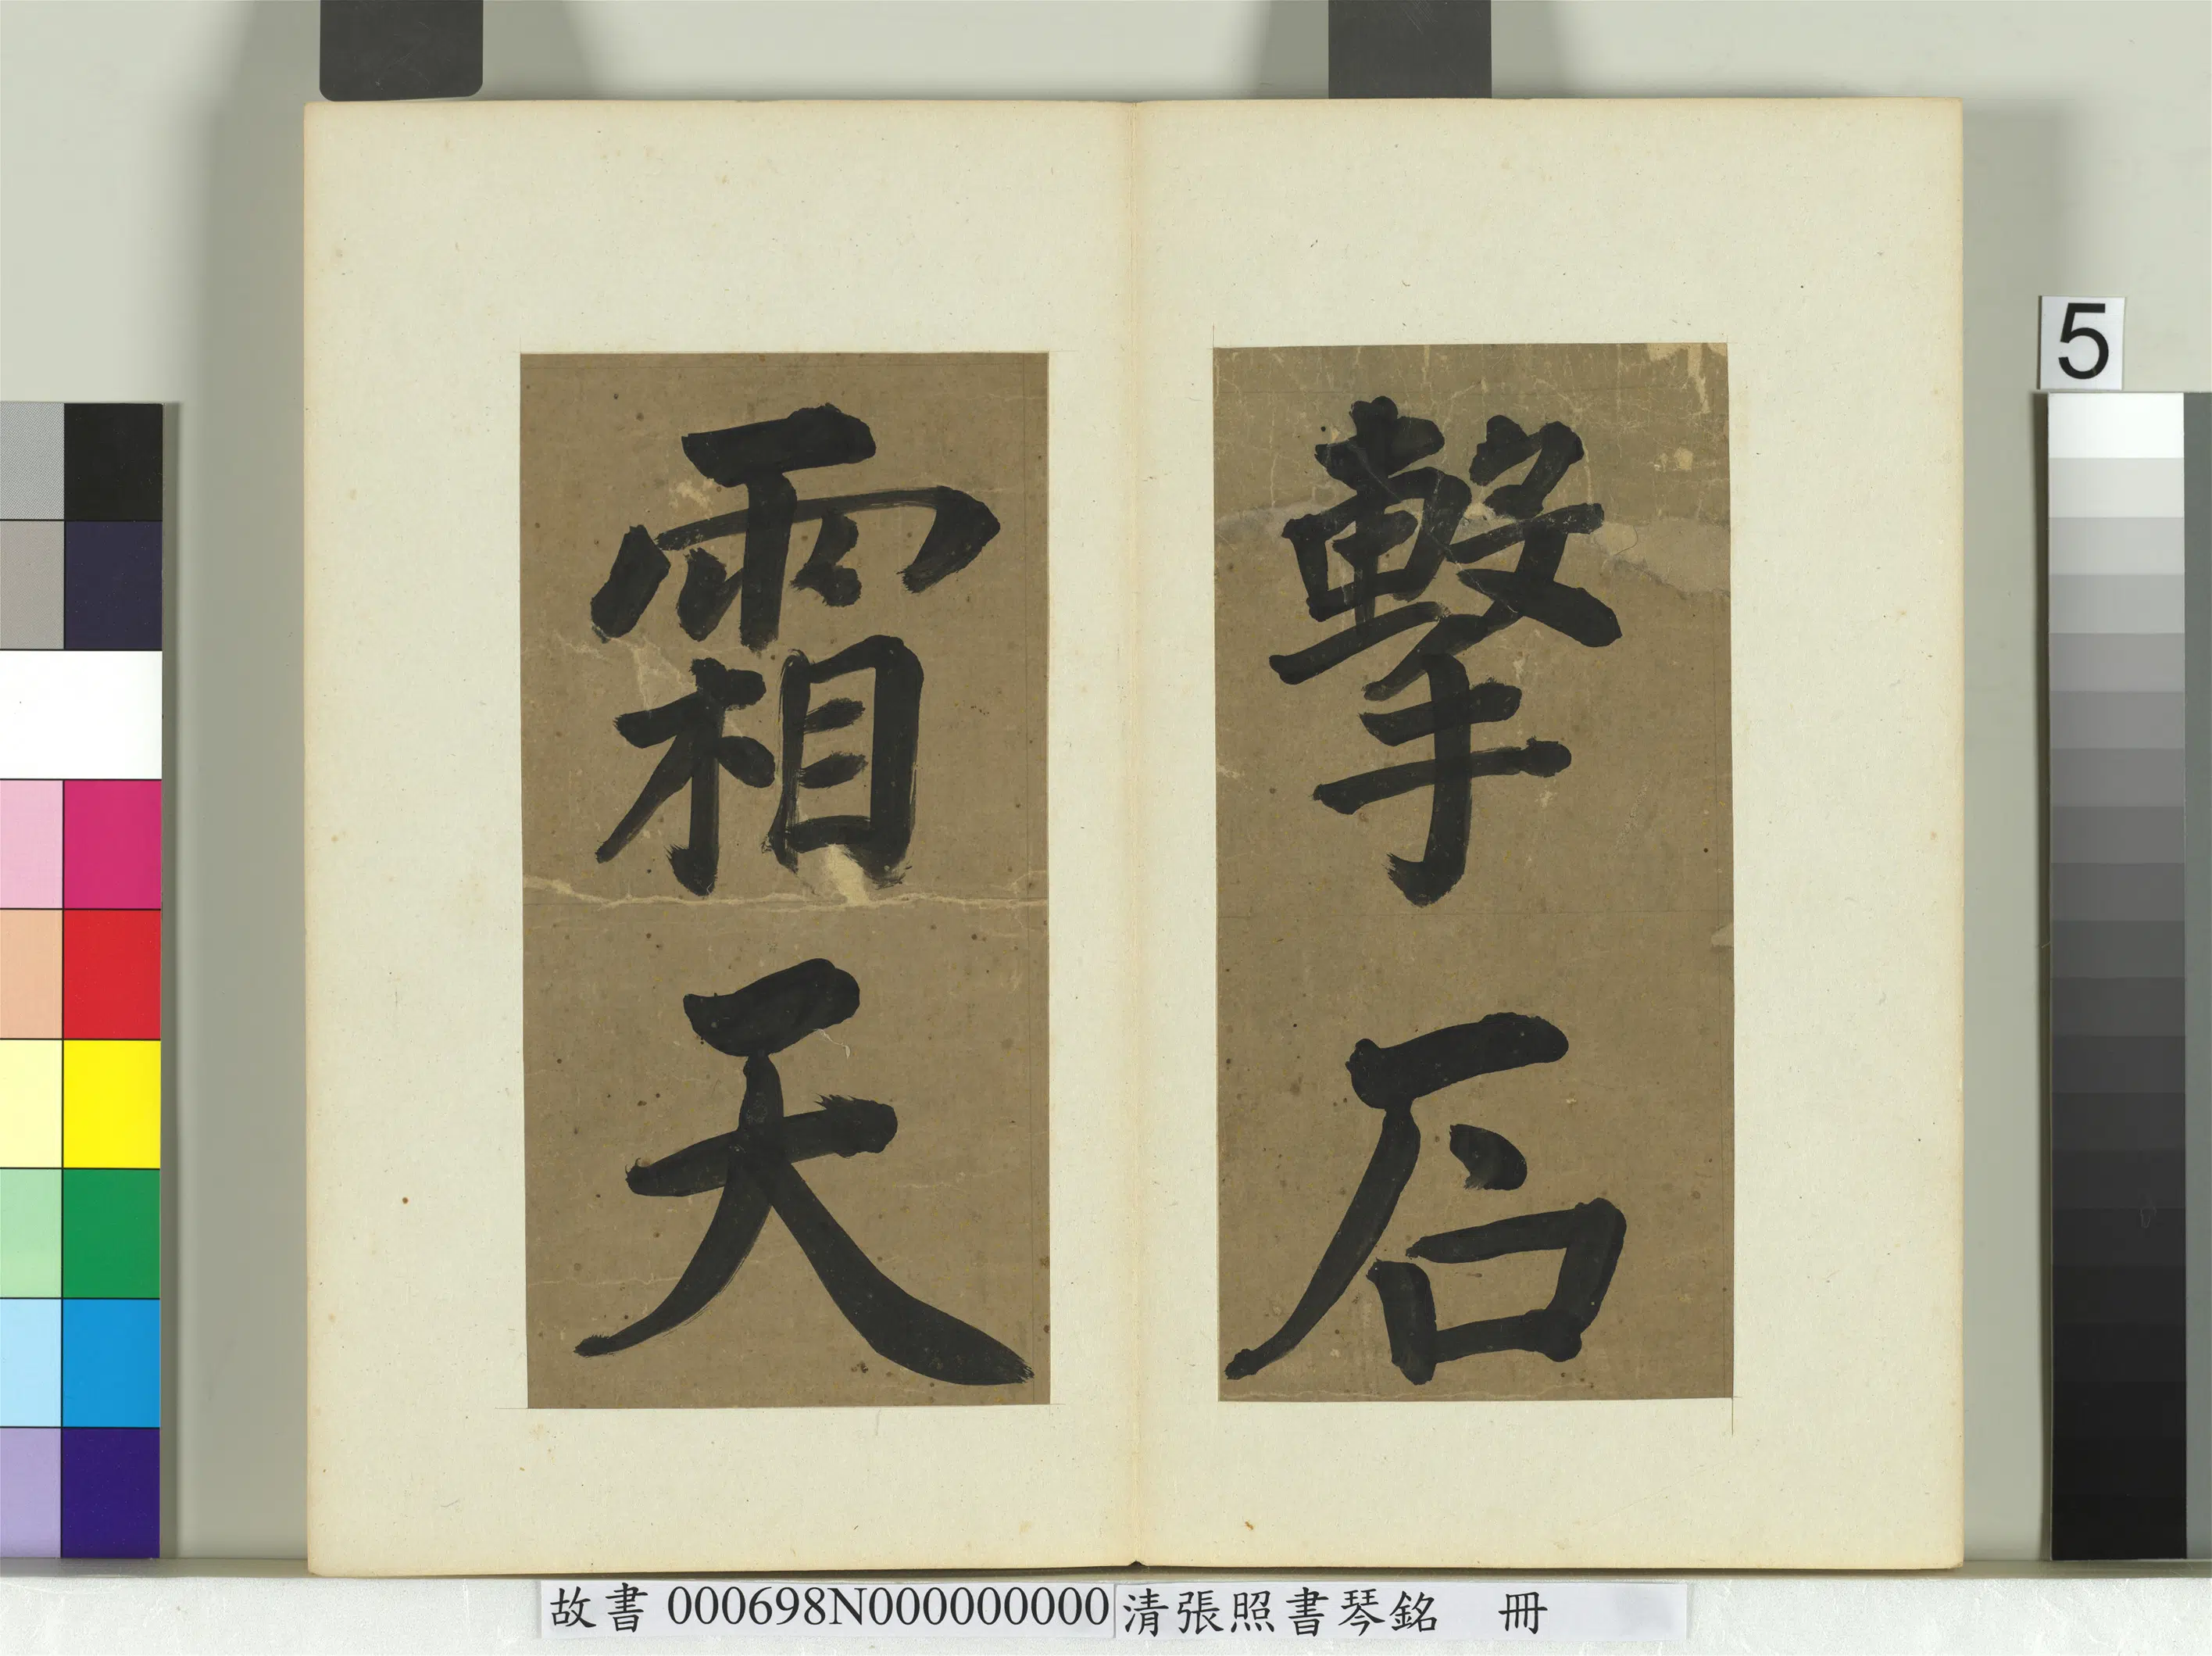 擊石
霜天
5
故書 000698N000000000 清張照書琴銘 冊